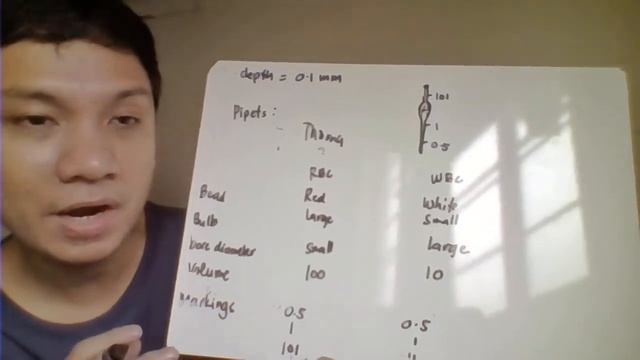 depth = 0.1 mm
101
1
0.5
Pipets:
Thoma
RBC WBC
Bead Red White
Bulb Large Small
bore diameter Small Large
Volume 100 10
Markings 0.5 0.5
1 1
101 11